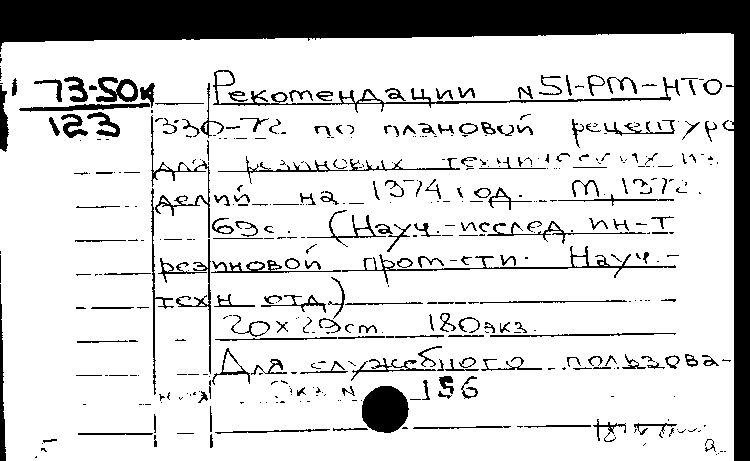 73-50к Рекомендации N51-РМ-НТО-
123 330-72 по плановой рецептуре
для резиновых технических из-
делий на 1974 год. М, 1972.
69с. (Науч.-исслед. ин-т
резиновой пром-сти. Науч.-
техн отд.)
20x29cm 180экз.
Для служебного пользова-
ния Экз N 156